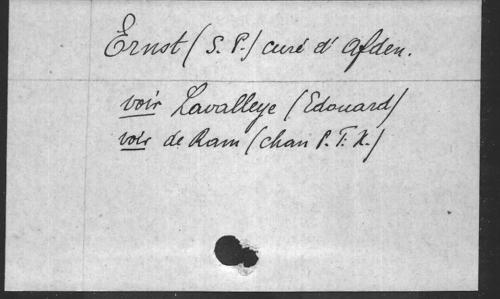 Ernst (S. P.) curé d' Afden.
voir Lavalleye (Edouard)
voir de Ram (chan P. F. X.)